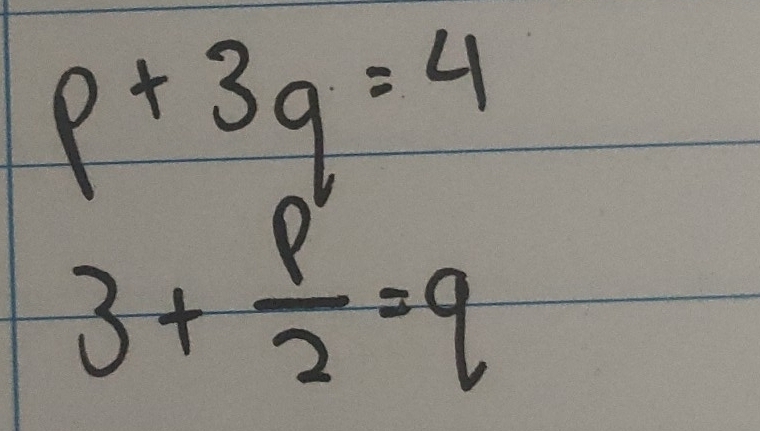 p + 3q = 4
3 + p/2 = q